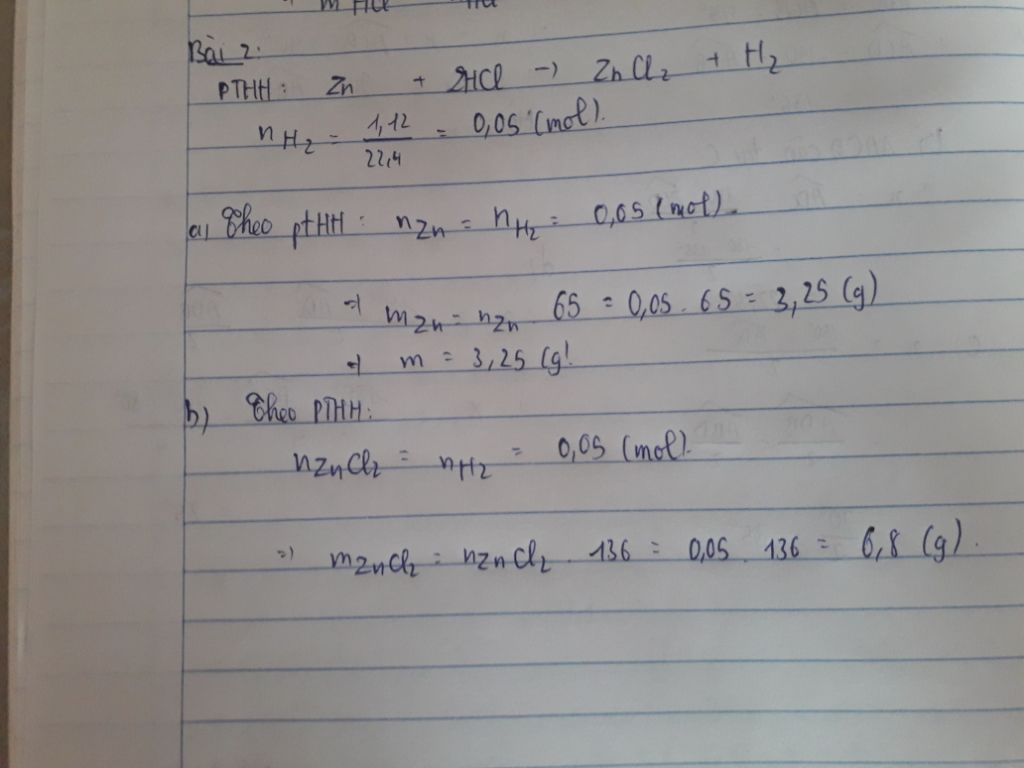 m HCl
Bài 2:
PTHH: Zn + 2HCl -> ZnCl2 + H2
nH2 = 1,12/22,4 = 0,05 (mol).
a, Theo ptHH: nZn = nH2 = 0,05 (mol).
=> mZn = nZn 65 = 0,05 . 65 = 3,25 (g)
=> m = 3,25 (g!
b) Theo PTHH:
nZnCl2 = nH2 = 0,05 (mol).
=> mZnCl2 = nZnCl2 . 136 = 0,05 . 136 = 6,8 (g).